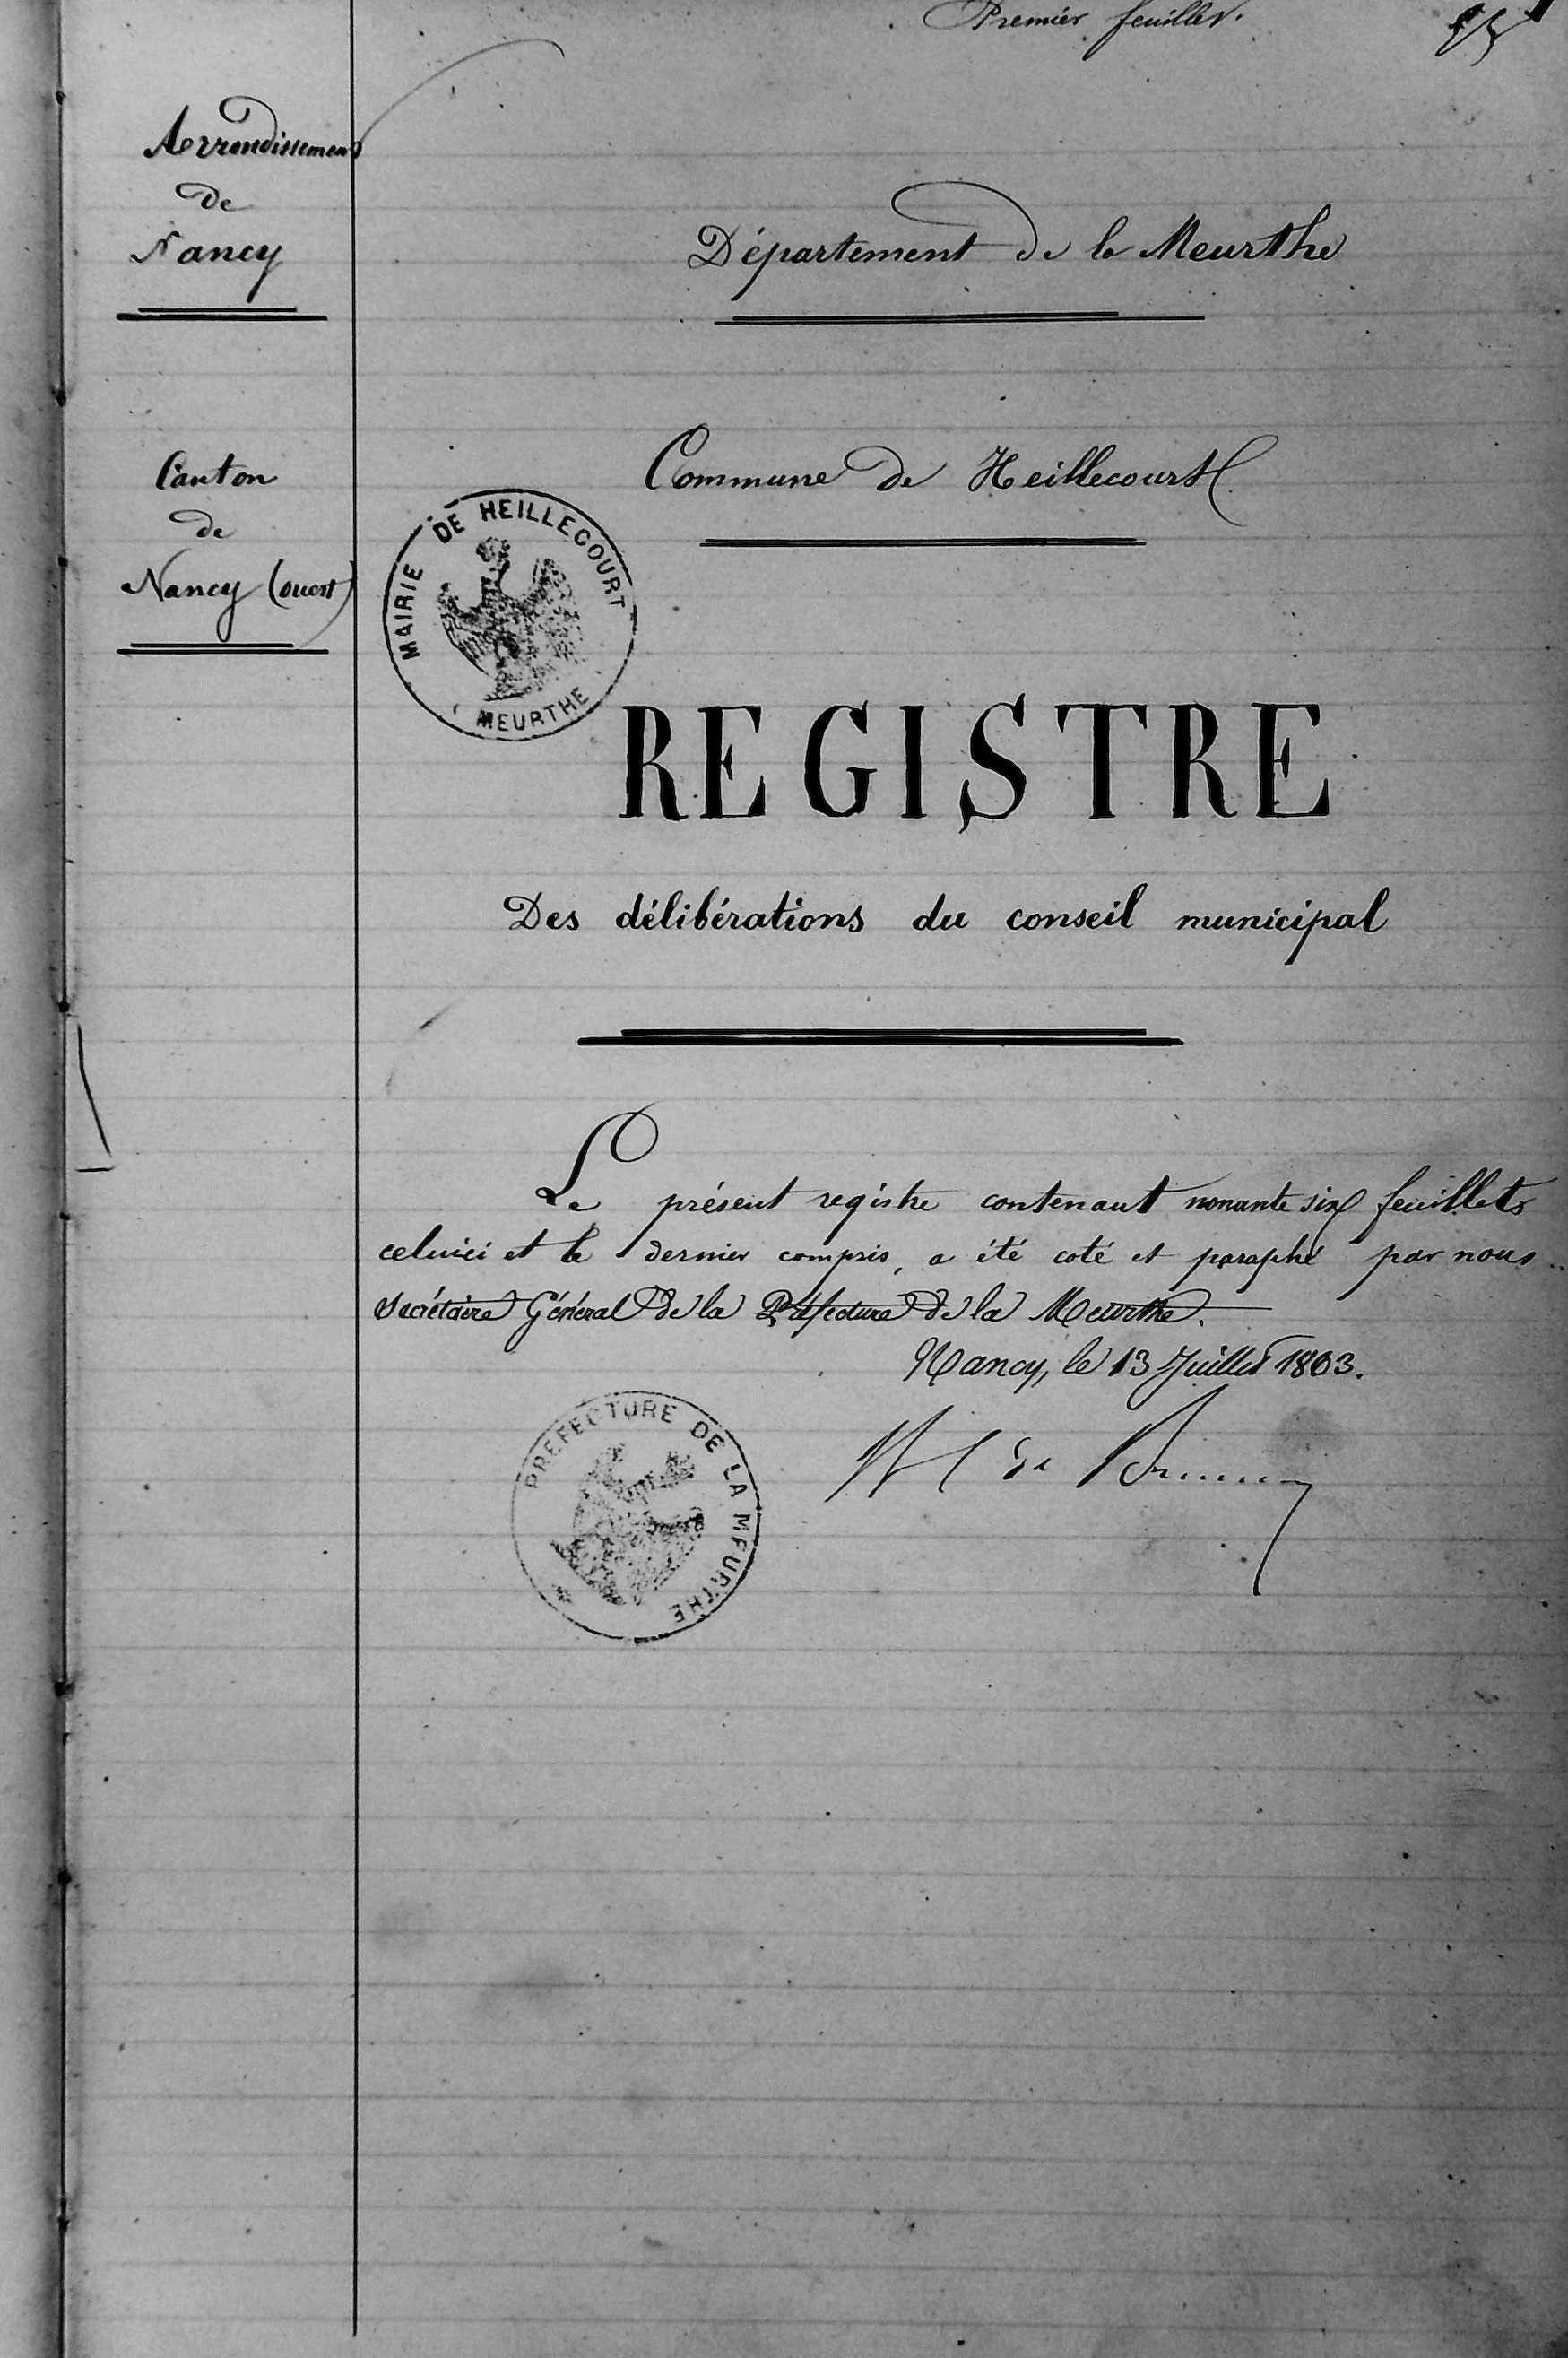 Premier feuillet.
Arrondissement
de
Nancy
Département de la Meurthe
Canton
de
Nancy (ouest)
Commune de Heillecourt
MAIRIE DE HEILLECOURT
MEURTHE
REGISTRE
Des délibérations du conseil municipal
Le présent registre contenant nonante six feuillets
celuici et le dernier compris, a été coté et paraphé par nous
Secrétaire Général de la Préfecture de la Meurthe.
Nancy, le 13 Juillet 1863.
PREFECTURE DE LA MEURTHE